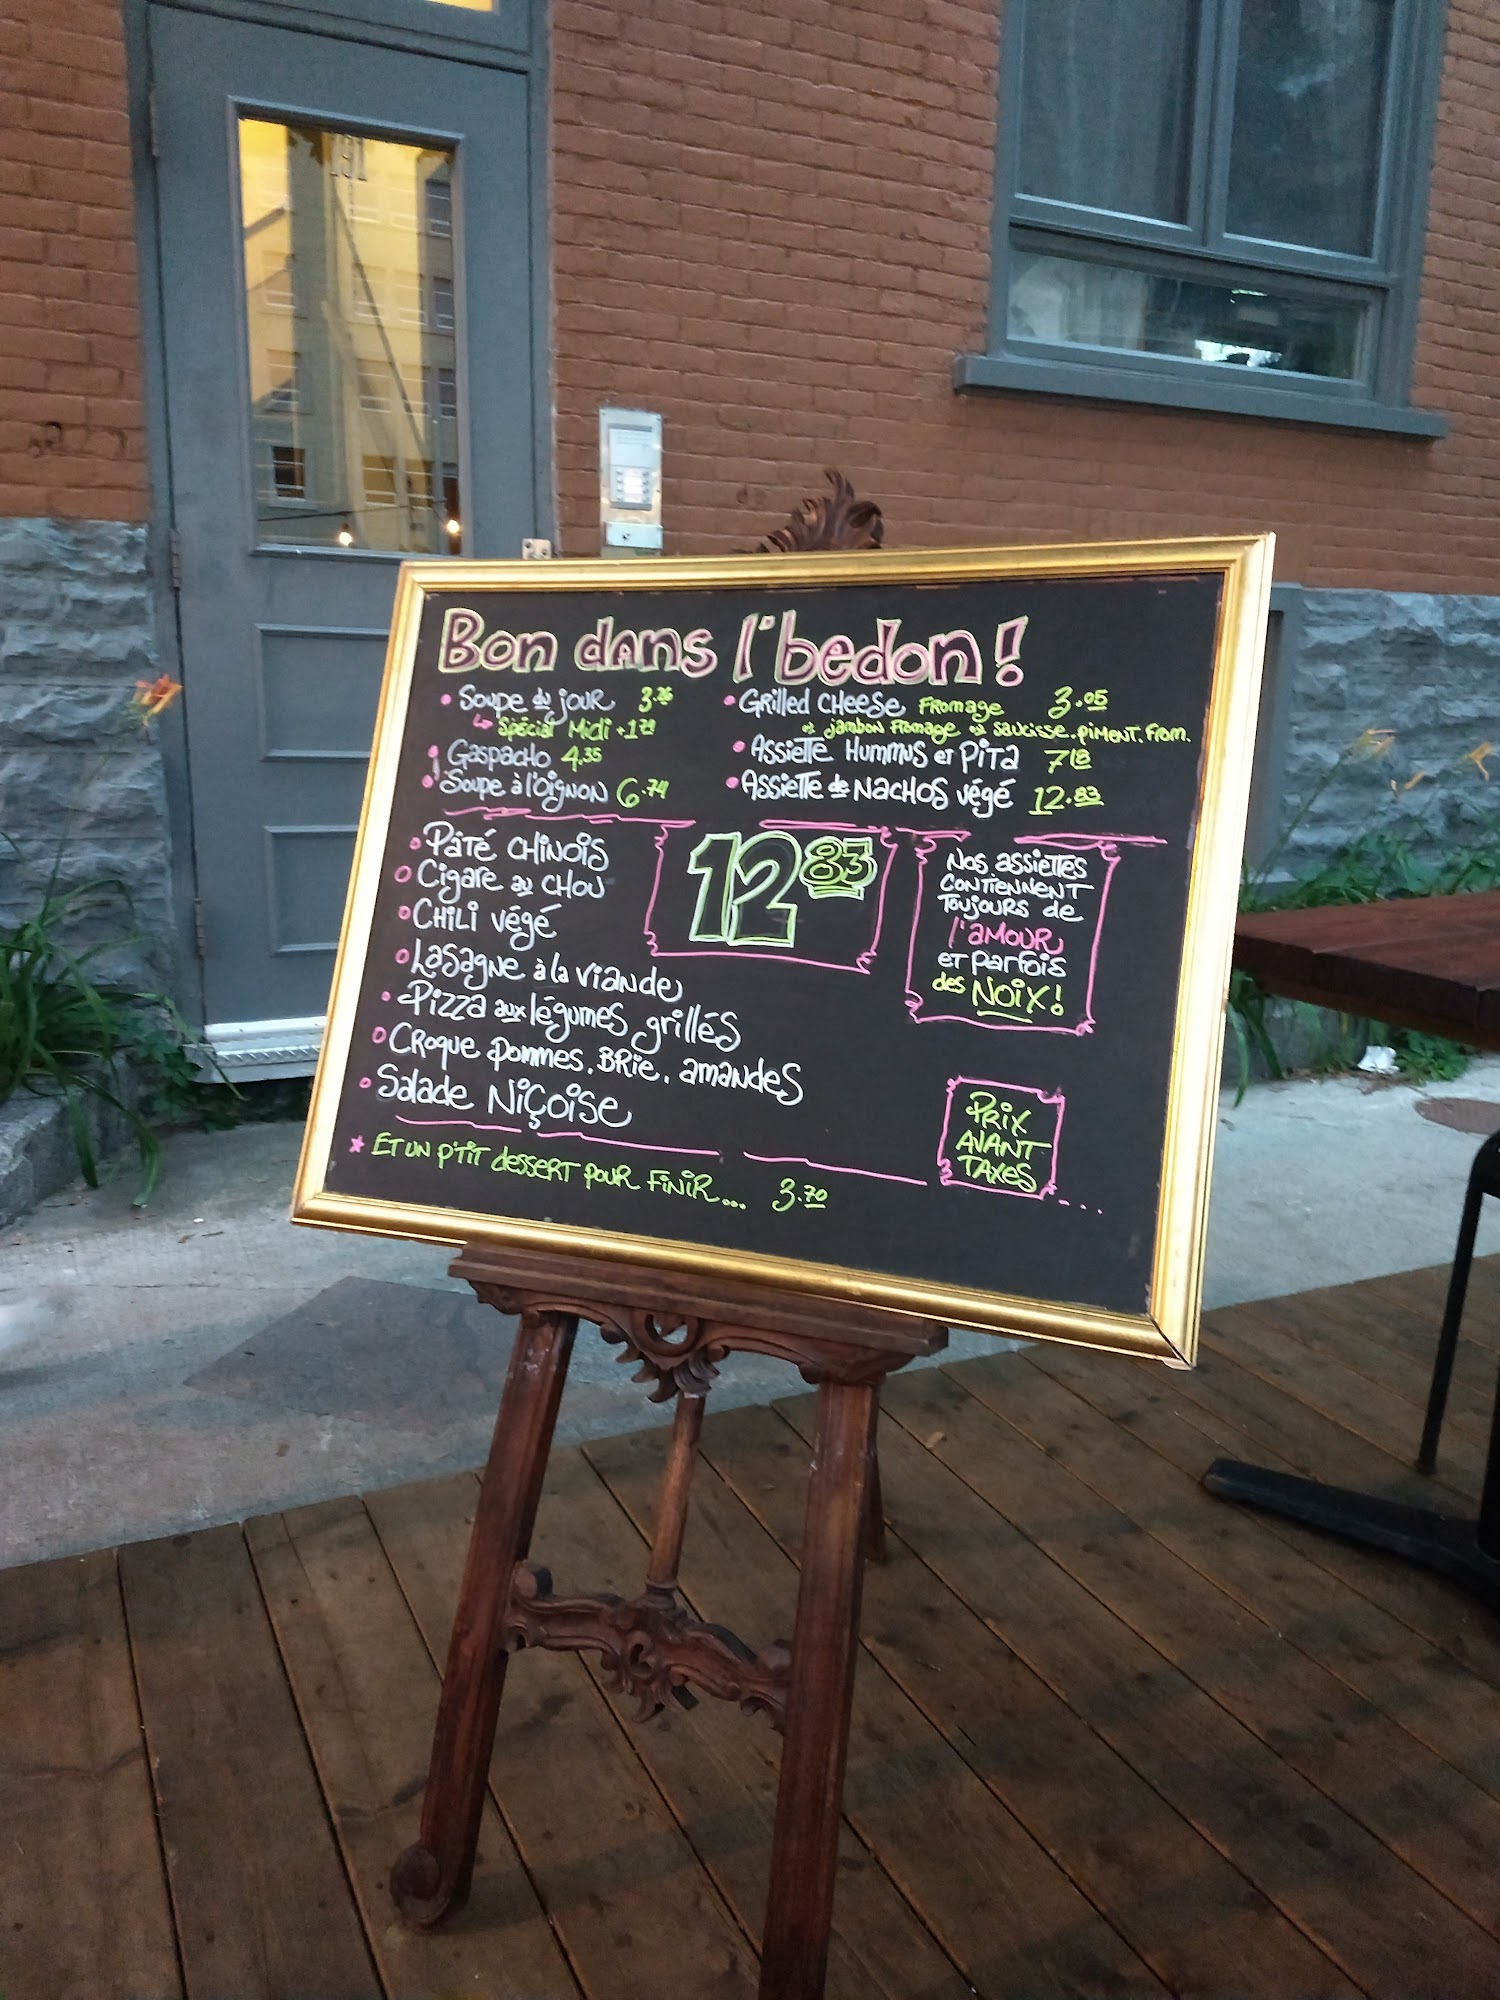 191
Bon dans l'bedon!
• Soupe du jour 3.26
↳ Spécial Midi +1.74
• Gaspacho 4.35
• Soupe à l'oignon 6.74
• Grilled Cheese Fromage 3.05
ou jambon fromage ou saucisse.piment.from.
• Assiette Hummus et Pita 7.18
• Assiette de Nachos végé 12.83
• Pâté chinois
Cigare au chou
• Chili végé
• Lasagne à la viande
• Pizza aux légumes grillés
Croque pommes.Brie.amandes
• Salade Niçoise
12.83
Nos assiettes
contiennent
toujours de
l'amour
et parfois
des noix!
* Et un p'tit dessert pour finir... 3.70
Prix
avant
taxes